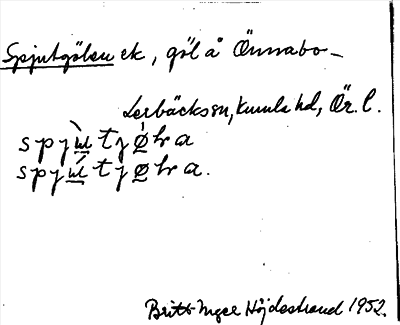 Spjutgölen ek, göl å Önnabo–
Lerbäcks sn, Kumla hd, Ör. l.
spjùtjǿlra
spjútjølra.
Britt-Inger Höjdestrand 1952.